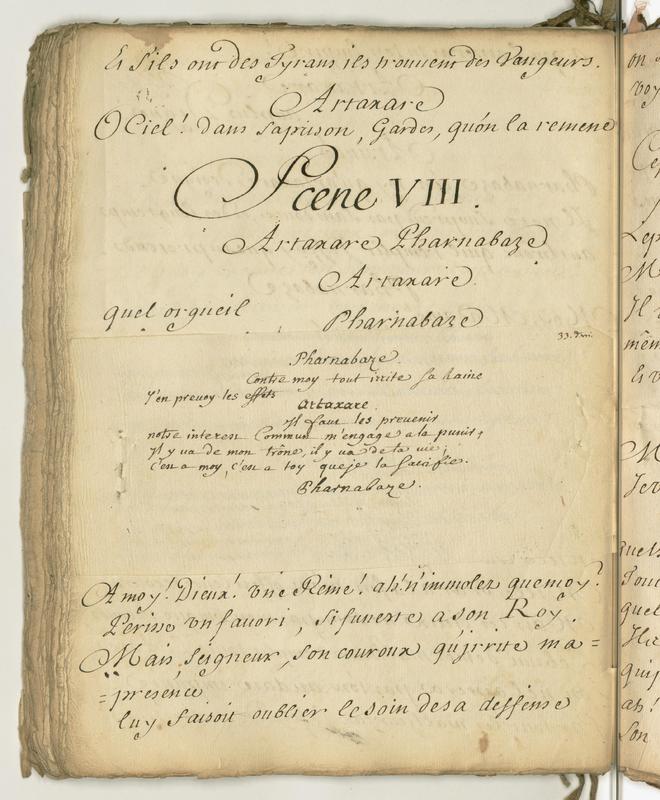 Et s'ils ont des Tyrans ils trouvent des Vangeurs.
Artaxare
O Ciel! dans sa prison, Gardes, qu'on la remene
Scene VIII.
Artaxare Pharnabaze
Artaxare.
quel orgueil
Pharnabaze
Pharnabaze.
Contre moy tout irrite sa haine
J'en prevoy les effets
Artaxare.
Il faut les prevenir
notre interest Commun m'engage a la punir,
Il y va de mon trône, il y va de ta vie,
C'est a moy, c'est a toy que je la sacrifie.
Pharnabaze.
A moy! Dieux! une Reine! ah! n'immolez que moy!
Perisse un favori, si funeste a son Roy.
Mais, seigneur, son couroux qu'irrite ma =
= presence
luy faisoit oublier le soin de sa deffense